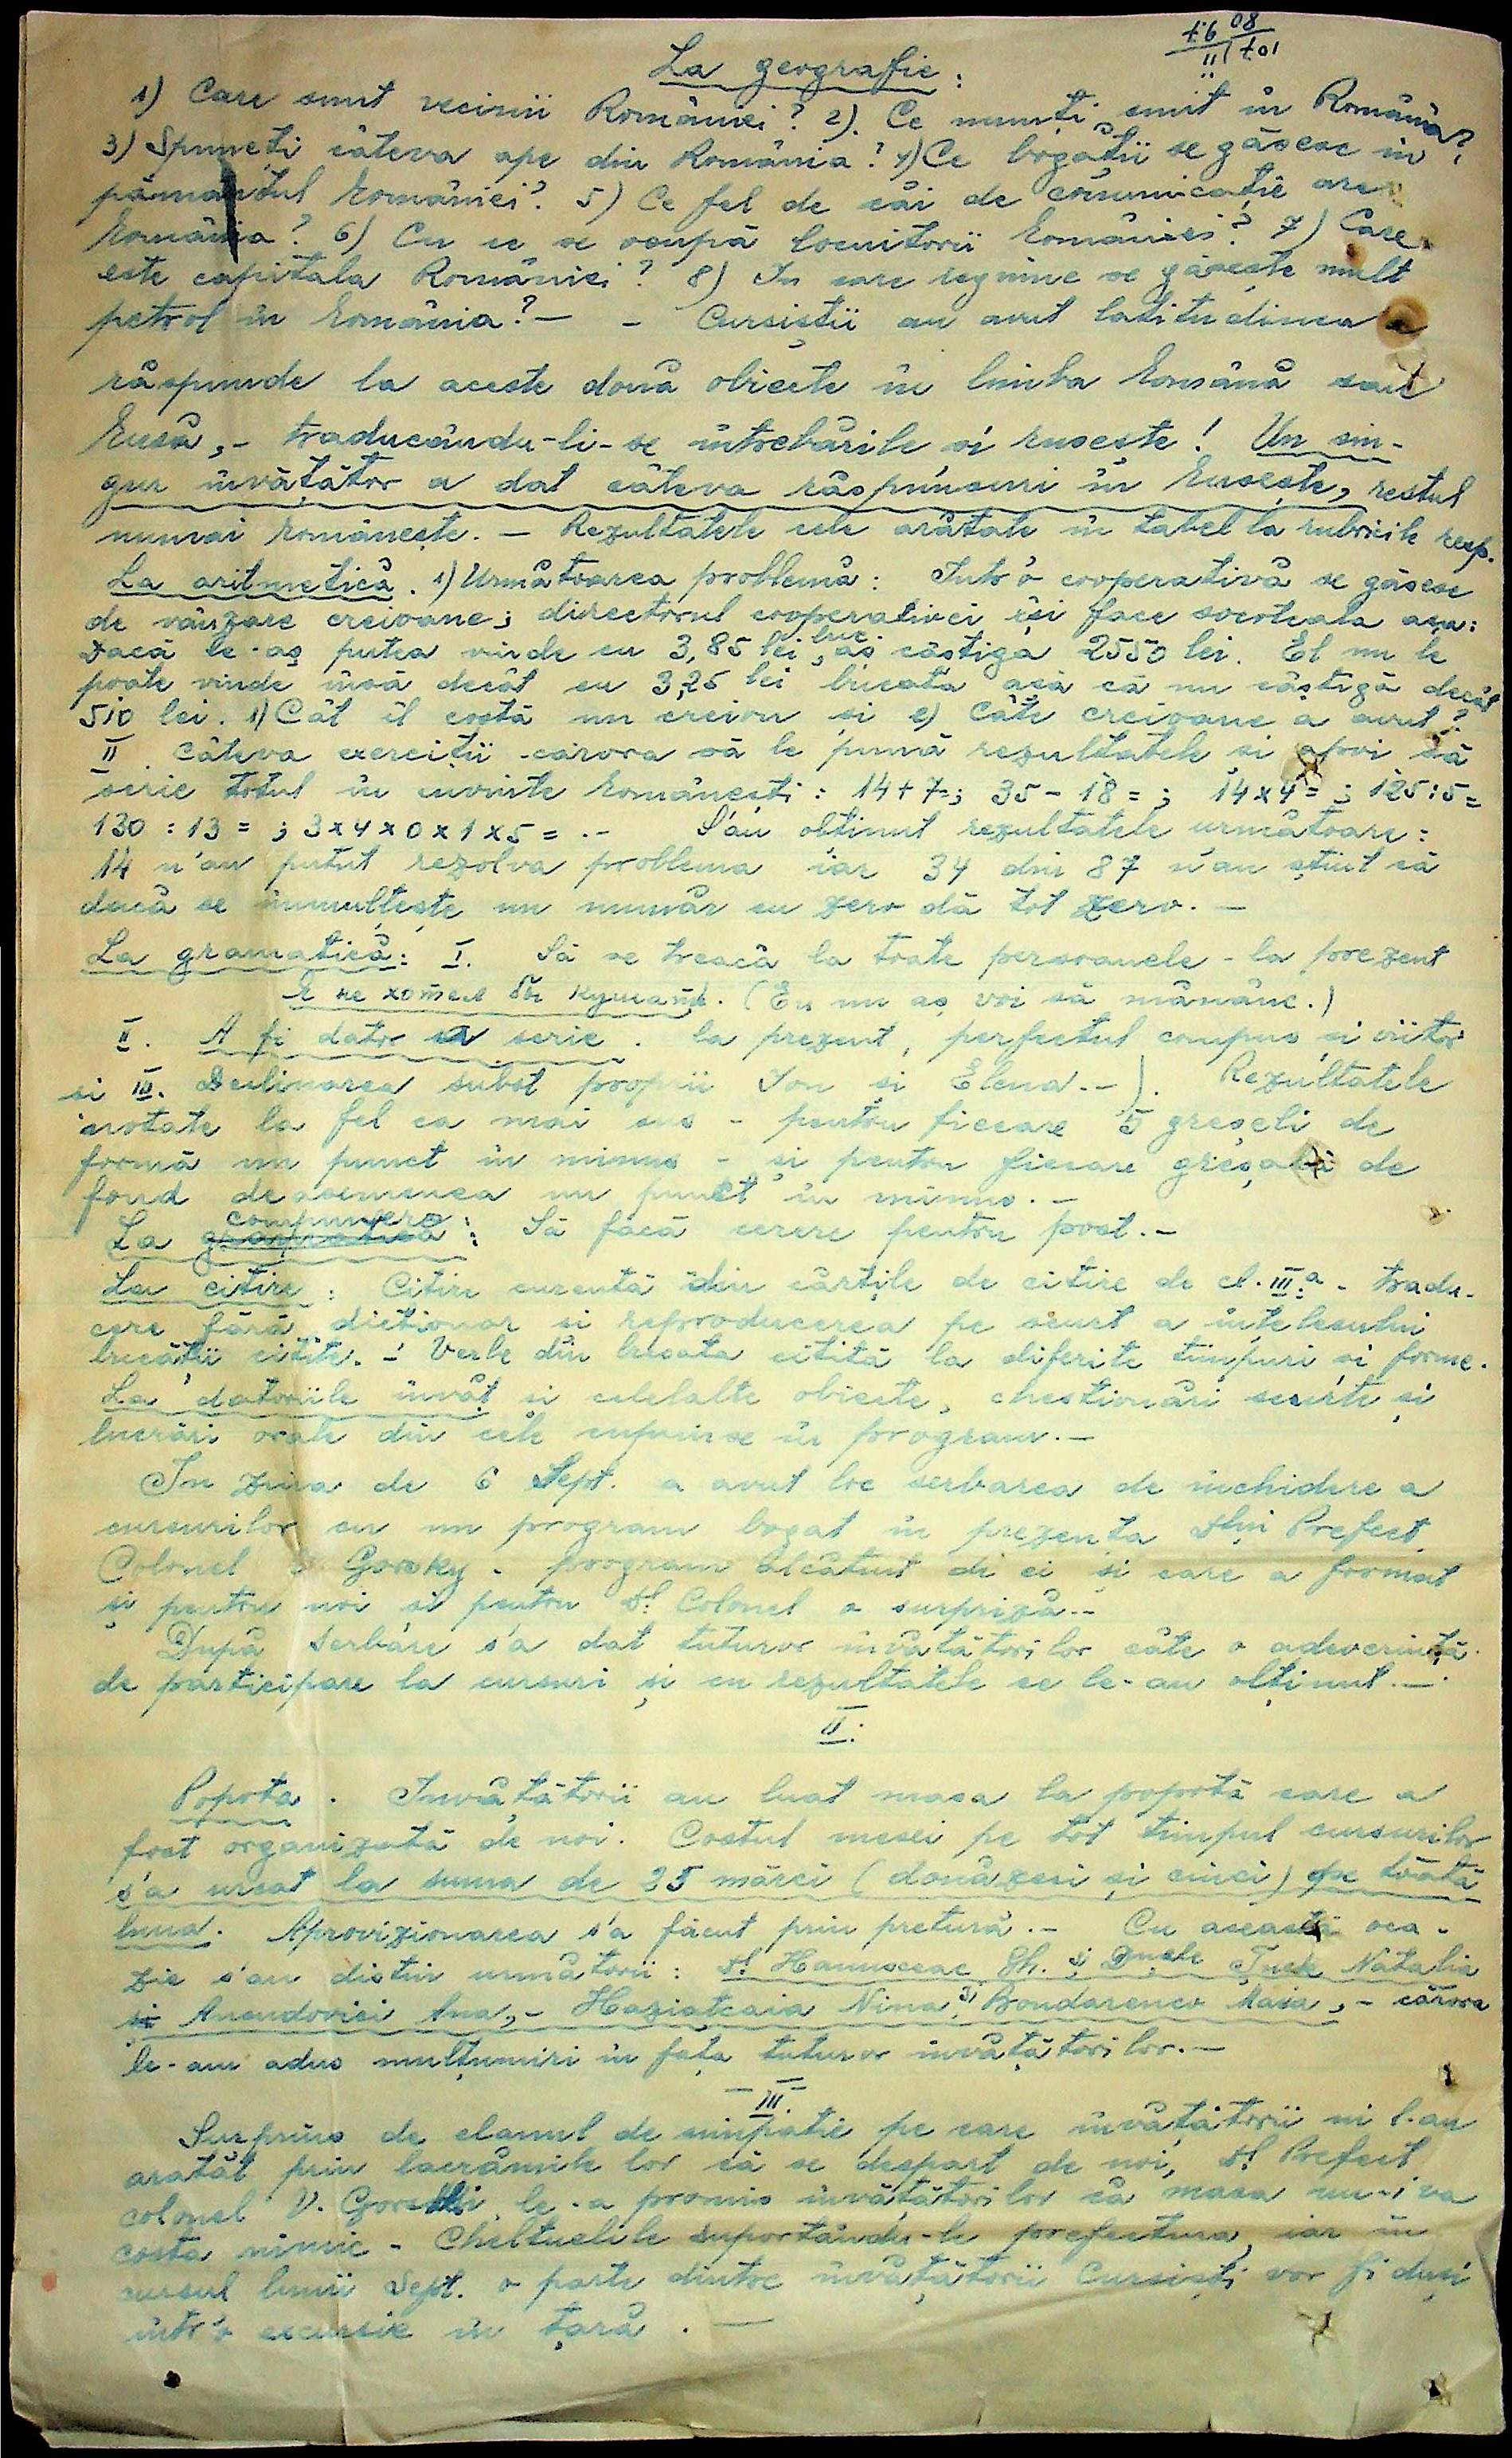 La geografie:
1) Care sunt vecinii României? 2). Ce munți sunt în România?
3) Spuneți câteva ape din România? 4) Ce bogății se găsesc în
pământul României? 5) Ce fel de căi de comunicație are
România? 6) Cu ce se ocupă locuitorii României? 7) Care
este capitala României? 8) In care regiune se găsește mult
petrol în România? — - Cursiștii au avut latitudinea a
răspunde la aceste două obiecte în limba Română sau
Rusă, - traducându-li-se întrebările și rusește! Un sin-
gur învățător a dat câteva răspunsuri în Rusește, restul
numai Românește. — Rezultatele cele arătate în tabel la rubricile resp.
La aritmetică. 1) Următoarea problemă: Intr'o cooperativă se găsesc
de vânzare creioane; directorul cooperativei își face socoteala așa:
Dacă le-aș putea vinde cu 3,85 lei buc. aș câștiga 2550 lei. El nu le
poate vinde însă decât cu 3,25 lei bucata așa că nu câștigă decât
510 lei. 1) Cât îl costă un creion și 2) Câte creioane a avut?
II. Câteva exerciții cărora să le pună rezultatele și apoi să
scrie totul în cuvinte Românești: 14+7=; 35-18=; 14x4=; 125:5=
130:13=; 3x4x0x1x5=.- S'au obținut rezultatele următoare:
14 n'au putut rezolva problema iar 34 din 87 n'au știut că
dacă se înmulțește un număr cu zero dă tot zero. —
La gramatică: I. Să se treacă la toate persoanele - la prezent
Я не хотел бы кушать. (Eu nu aș voi să mănânc.)
II. A fi dator a scrie. la prezent, perfectul compus și viitor
si III. Declinarea subst proprii Ion și Elena--). Rezultatele
notate la fel ca mai sus - pentru fiecare 5 greșeli de
formă un punct în minus - și pentru fiecare greșală de
fond deasemenea un punct în minus. —
compunere:
La gramatică: Să facă cerere pentru post.-
La citire: Citire curentă din cărțile de citire de cl. III.a - tradu-
cere fără dicționar și reproducerea pe scurt a înțelesului
bucății citite. - Verbe din bucata citită la diferite timpuri și forme.
La datoriile învăț și celelalte obiecte, chestionări scurte și
lucrări orale din cele cuprinse în program. —
In ziua de 6 Sept. a avut loc serbarea de închidere a
cursurilor cu un program bogat în prezența Dlui Prefect
Colonel Gorsky - program alcătuit de ei și care a format
și pentru noi și pentru Dl Colonel o surpriză.-
După serbare s'a dat tuturor învățătorilor câte o adeverință
de participare la cursuri și cu rezultatele ce le-au obținut. —
II.
Popota. Invățătorii au luat masa la popotă care a
fost organizată de noi. Costul mesei pe tot timpul cursurilor
s'a urcat la suma de 25 mărci (douăzeci și cinci) pe toată
luna. Aprovizionarea s'a făcut prin pretură.- Cu această oca-
zie s'au distins următorii: Dl Hanusceac Gh. și Dnele Natalia
si Anendovici Ana, - Haziațcaia Nina și Bondarenco Maia, - cărora
le-am adus mulțumiri în fața tuturor învățătorilor. —
III.
Surprins de elanul de simpatie pe care învățătorii ni l-au
arătat prin lacrămile lor că se despart de noi, Dl Prefect
colonel V. Gorski le-a promis învățătorilor că masa nu-i va
costa nimic - Cheltuelile suportându-le prefectura, iar în
cursul lunii Sept. o parte dintre învățătorii Cursiști vor fi duși
într'o excursie în țară. —